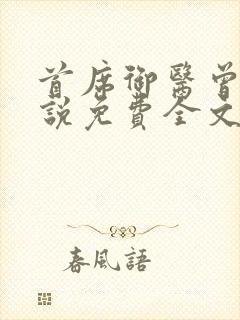 首席御醫曾
說免費全文
春風語